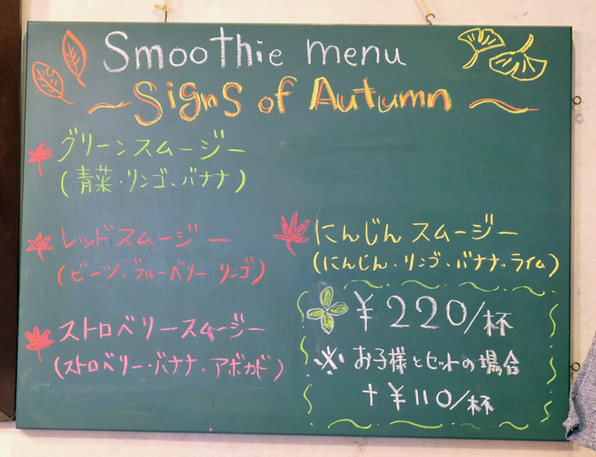 Smoothie menu
~Signs of Autumn~
グリーンスムージー
(青菜・リンゴ、バナナ)
レッドスムージー
(ビーツ、ブルーベリー リンゴ)
ストロベリースムージー
(ストロベリー・バナナ・アボカド)
にんじんスムージー
(にんじん・リンゴ・バナナ・ライム)
¥220/杯
※お子様とセットの場合
+¥110/杯